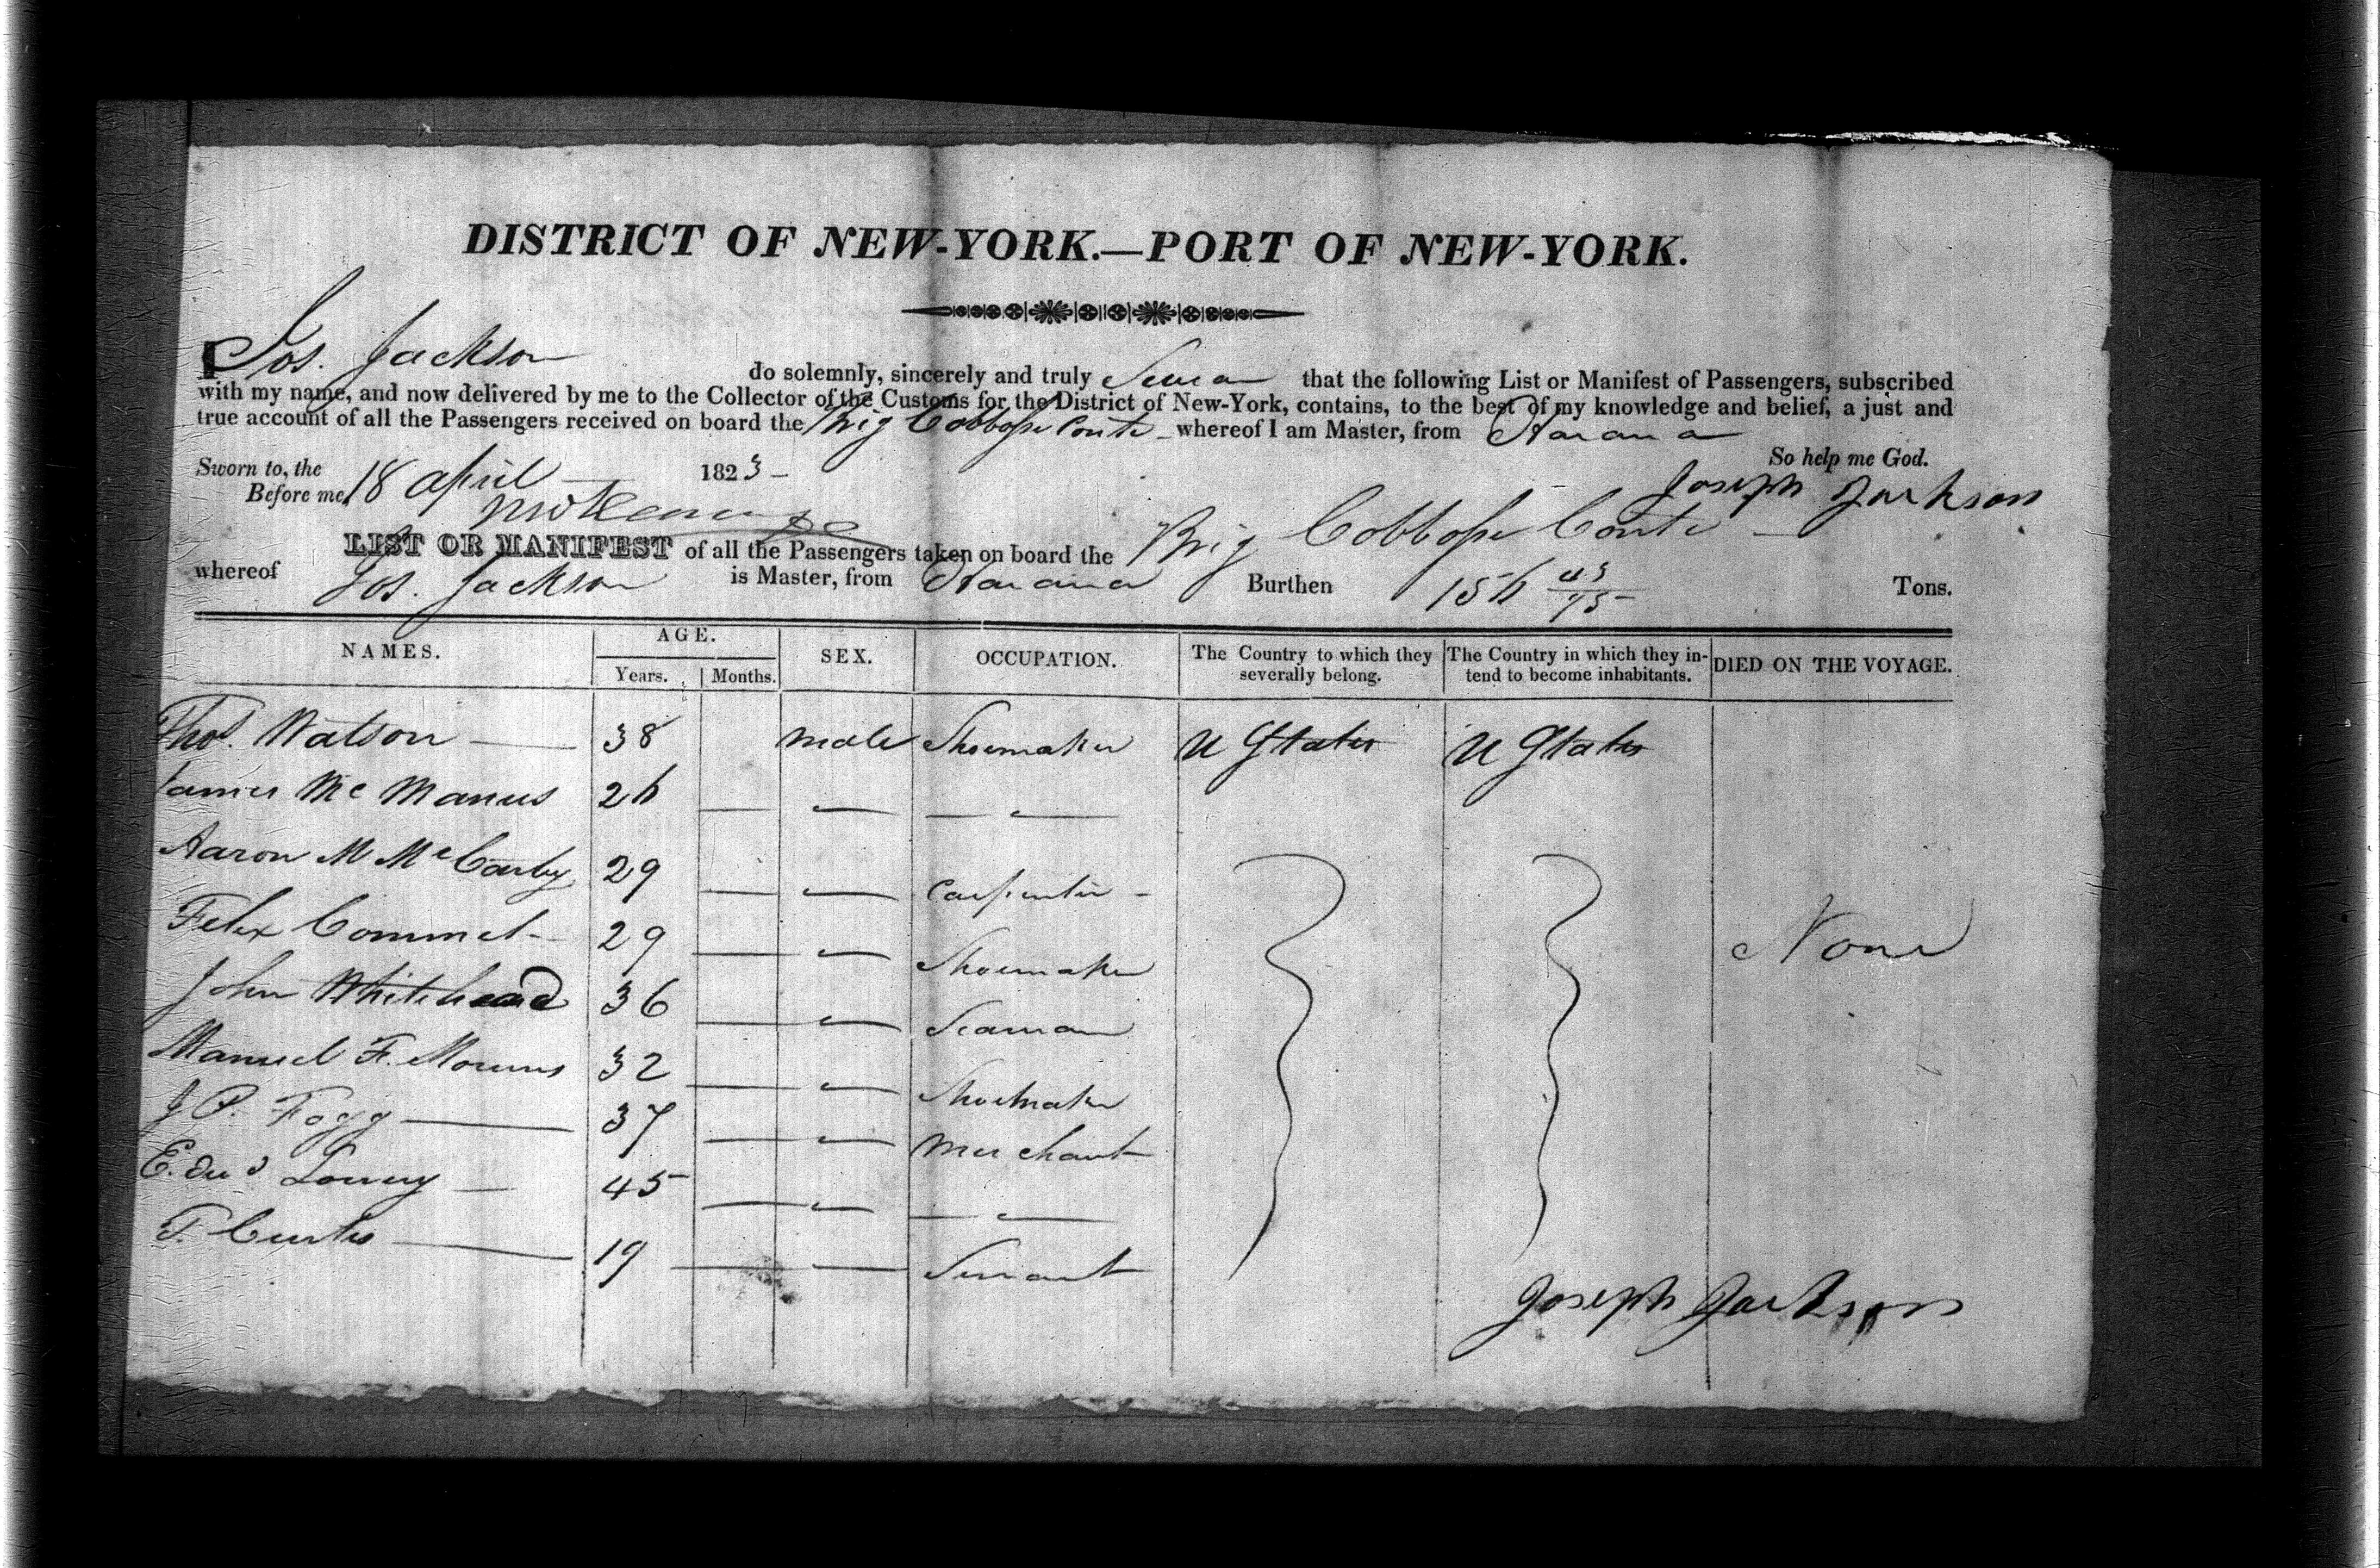 DISTRICT OF NEW-YORK.—PORT OF NEW-YORK.
I Jos. Jackson do solemnly, sincerely and truly Swear that the following List or Manifest of Passengers, subscribed
with my name, and now delivered by me to the Collector of the Customs for the District of New-York, contains, to the best of my knowledge and belief, a just and
true account of all the Passengers received on board the Brig Cobbosse Conte whereof I am Master, from Havana
So help me God.
Sworn to, the 18 April 1823 Joseph Jackson
Before me,
LIST OR MANIFEST of all the Passengers taken on board the Brig Cobbosse Conte
whereof Jos. Jackson is Master, from Havana Burthen 156 43/95 Tons.
NAMES. AGE. SEX. OCCUPATION. The Country to which they severally belong. The Country in which they intend to become inhabitants. DIED ON THE VOYAGE.
Years. Months.
Thos. Watson 38 male Shoemaker U States U States
James Mc Manus 26
Aaron M Mc 29 Carpenter
Felix 29 Shoemaker None
John Whitehead 36 Seaman
Manuel F. 32 Shoemaker
J P. Fogg 37 Merchant
Edwd Lowry 45
T. Curtis 19 Servant
Joseph Jackson